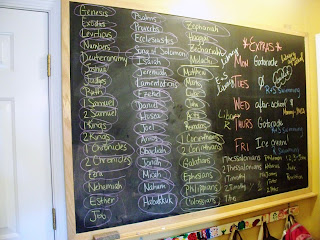 Genesis
Exodus
Leviticus
Numbers
Deuteronomy
Joshua
Judges
Ruth
1 Samuel
2 Samuel
1 Kings
2 Kings
1 Chronicles
2 Chronicles
Ezra
Nehemiah
Esther
Job
Psalms
Proverbs
Ecclesiastes
Song of Solomon
Isaiah
Jeremiah
Lamentations
Ezekiel
Daniel
Hosea
Joel
Amos
Obadiah
Jonah
Micah
Nahum
Habakkuk
Zephaniah
Haggai
Zechariah
Malachi
Matthew
Mark
John
Acts
Romans
1 Corinthians
2 Corinthians
Galatians
Ephesians
Philippians
Colossians
*EXTRAS*
MON Gatorade
TUES
WED
THURS Gatorade
R+S Swimming
FRI Ice cream!
R+S Swimming
1 Thessalonians
2 Thessalonians
1 Timothy
2 Timothy
Titus
Philemon
Hebrews
James
1 Peter
2 Peter
1,2,3 John
Jude